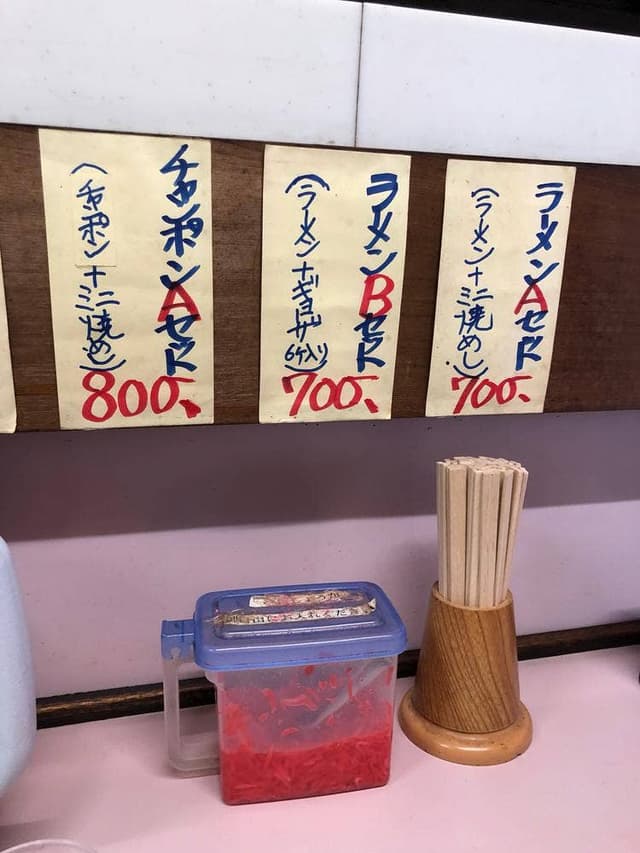 ラーメンAセット
(ラーメン+ミニ焼めし)
700-
ラーメンBセット
(ラーメン+ギョーザ6ケ入り)
700-
チャンポンAセット
(チャンポン+ミニ焼めし)
800-